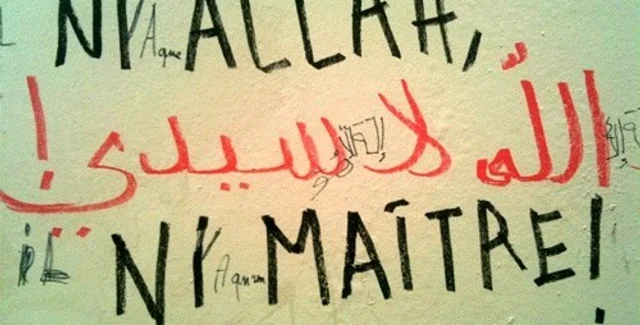 NY ALLAH,
اللّه لا سيدي!
NY MAÎTRE!